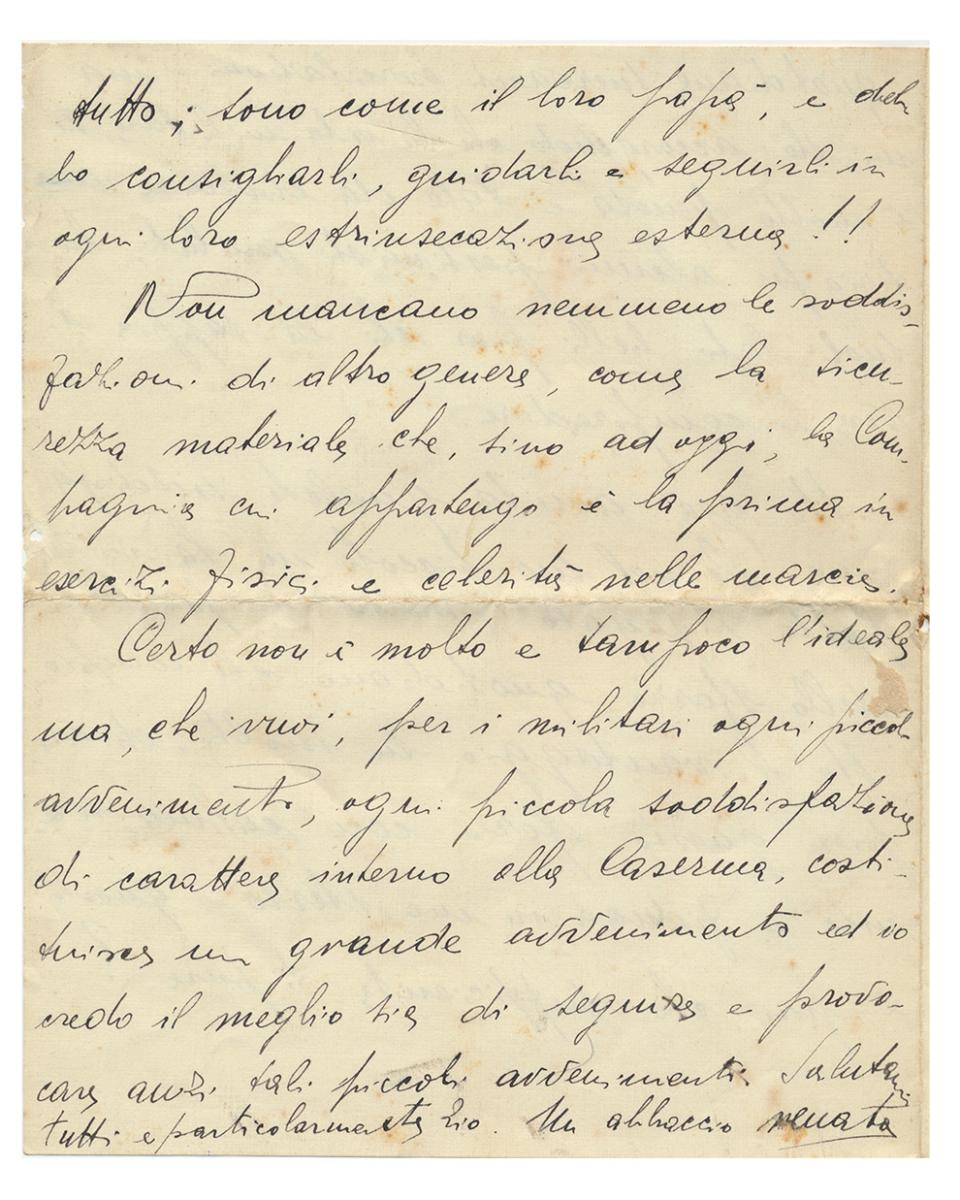 tutto; sono come il loro papà, e deb
bo consigliarli, guidarli e seguirli in
ogni loro estrinsecazione esterna!!
Non mancano nemmeno le soddis-
fazioni di altro genere, come la sicu-
rezza materiale che, sino ad oggi, la Com-
pagnia cui appartengo è la prima in
esercizi fisici e celerità nelle marcie.
Certo non è molto e tampoco l'ideale
ma, che vuoi, per i militari ogni piccolo
avvenimento, ogni piccola soddisfazione
di carattere interno alla Caserma, costi-
tuisce un grande avvenimento ed io
credo il meglio sia di seguire e provo-
care anzi tali piccoli avvenimenti. Salutami
tutti e particolarmente zio. Un abbraccio renato